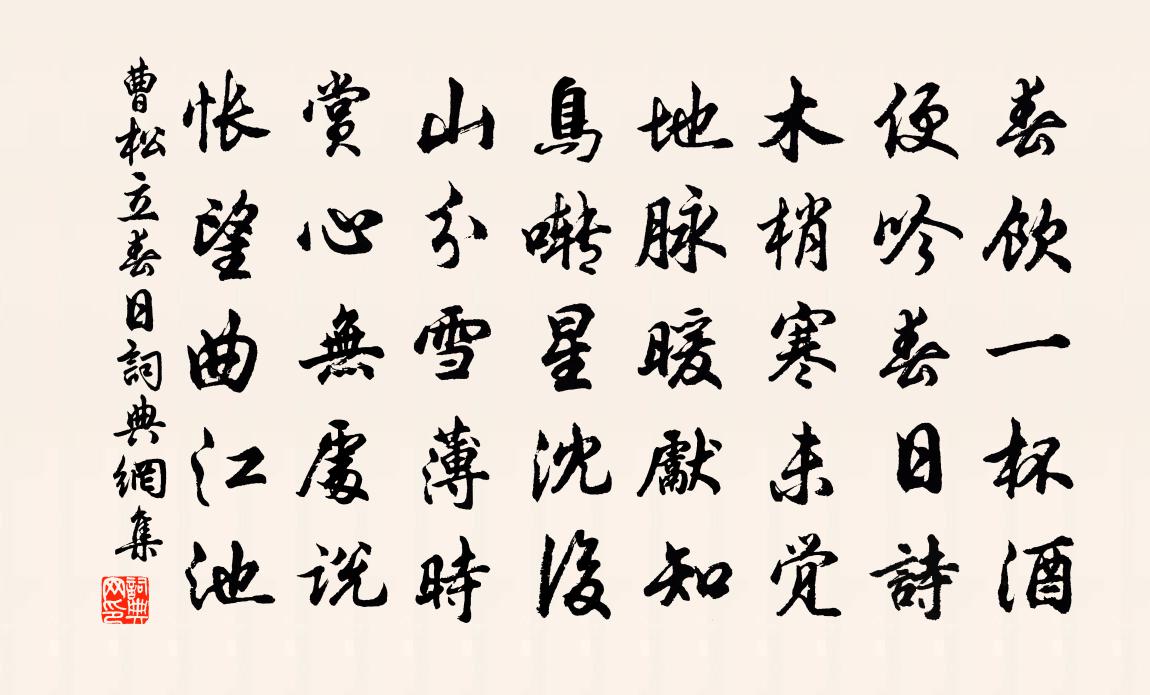 春飲一杯酒
便吟春日詩
木梢寒未觉
地脉暖獻知
鳥囀星沈後
山分雪薄時
賞心無處説
悵望曲江池
曹松立春日詞典網集
詞典
网印